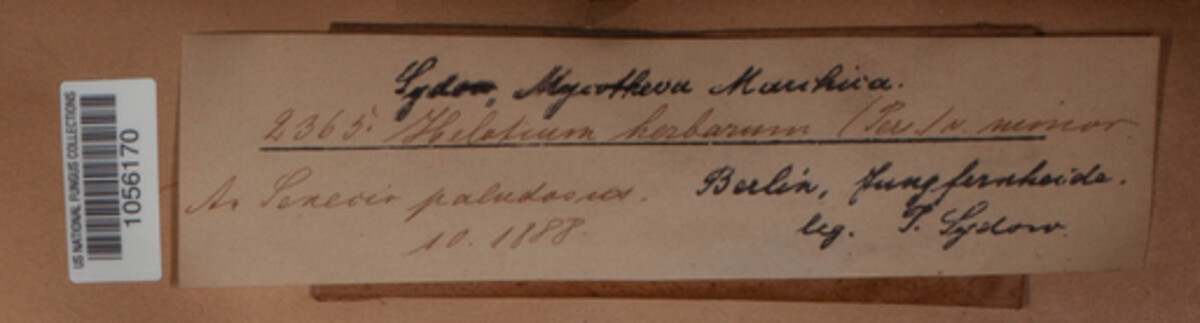 US NATIONAL FUNGUS COLLECTIONS
1056170
Sydow, Mycotheca Marchica.
2365. Helotium herbarum (Pers.) v. minor
An Senecio paludosus.
10. 1888.
Berlin, Jungfernheide.
leg. P. Sydow.